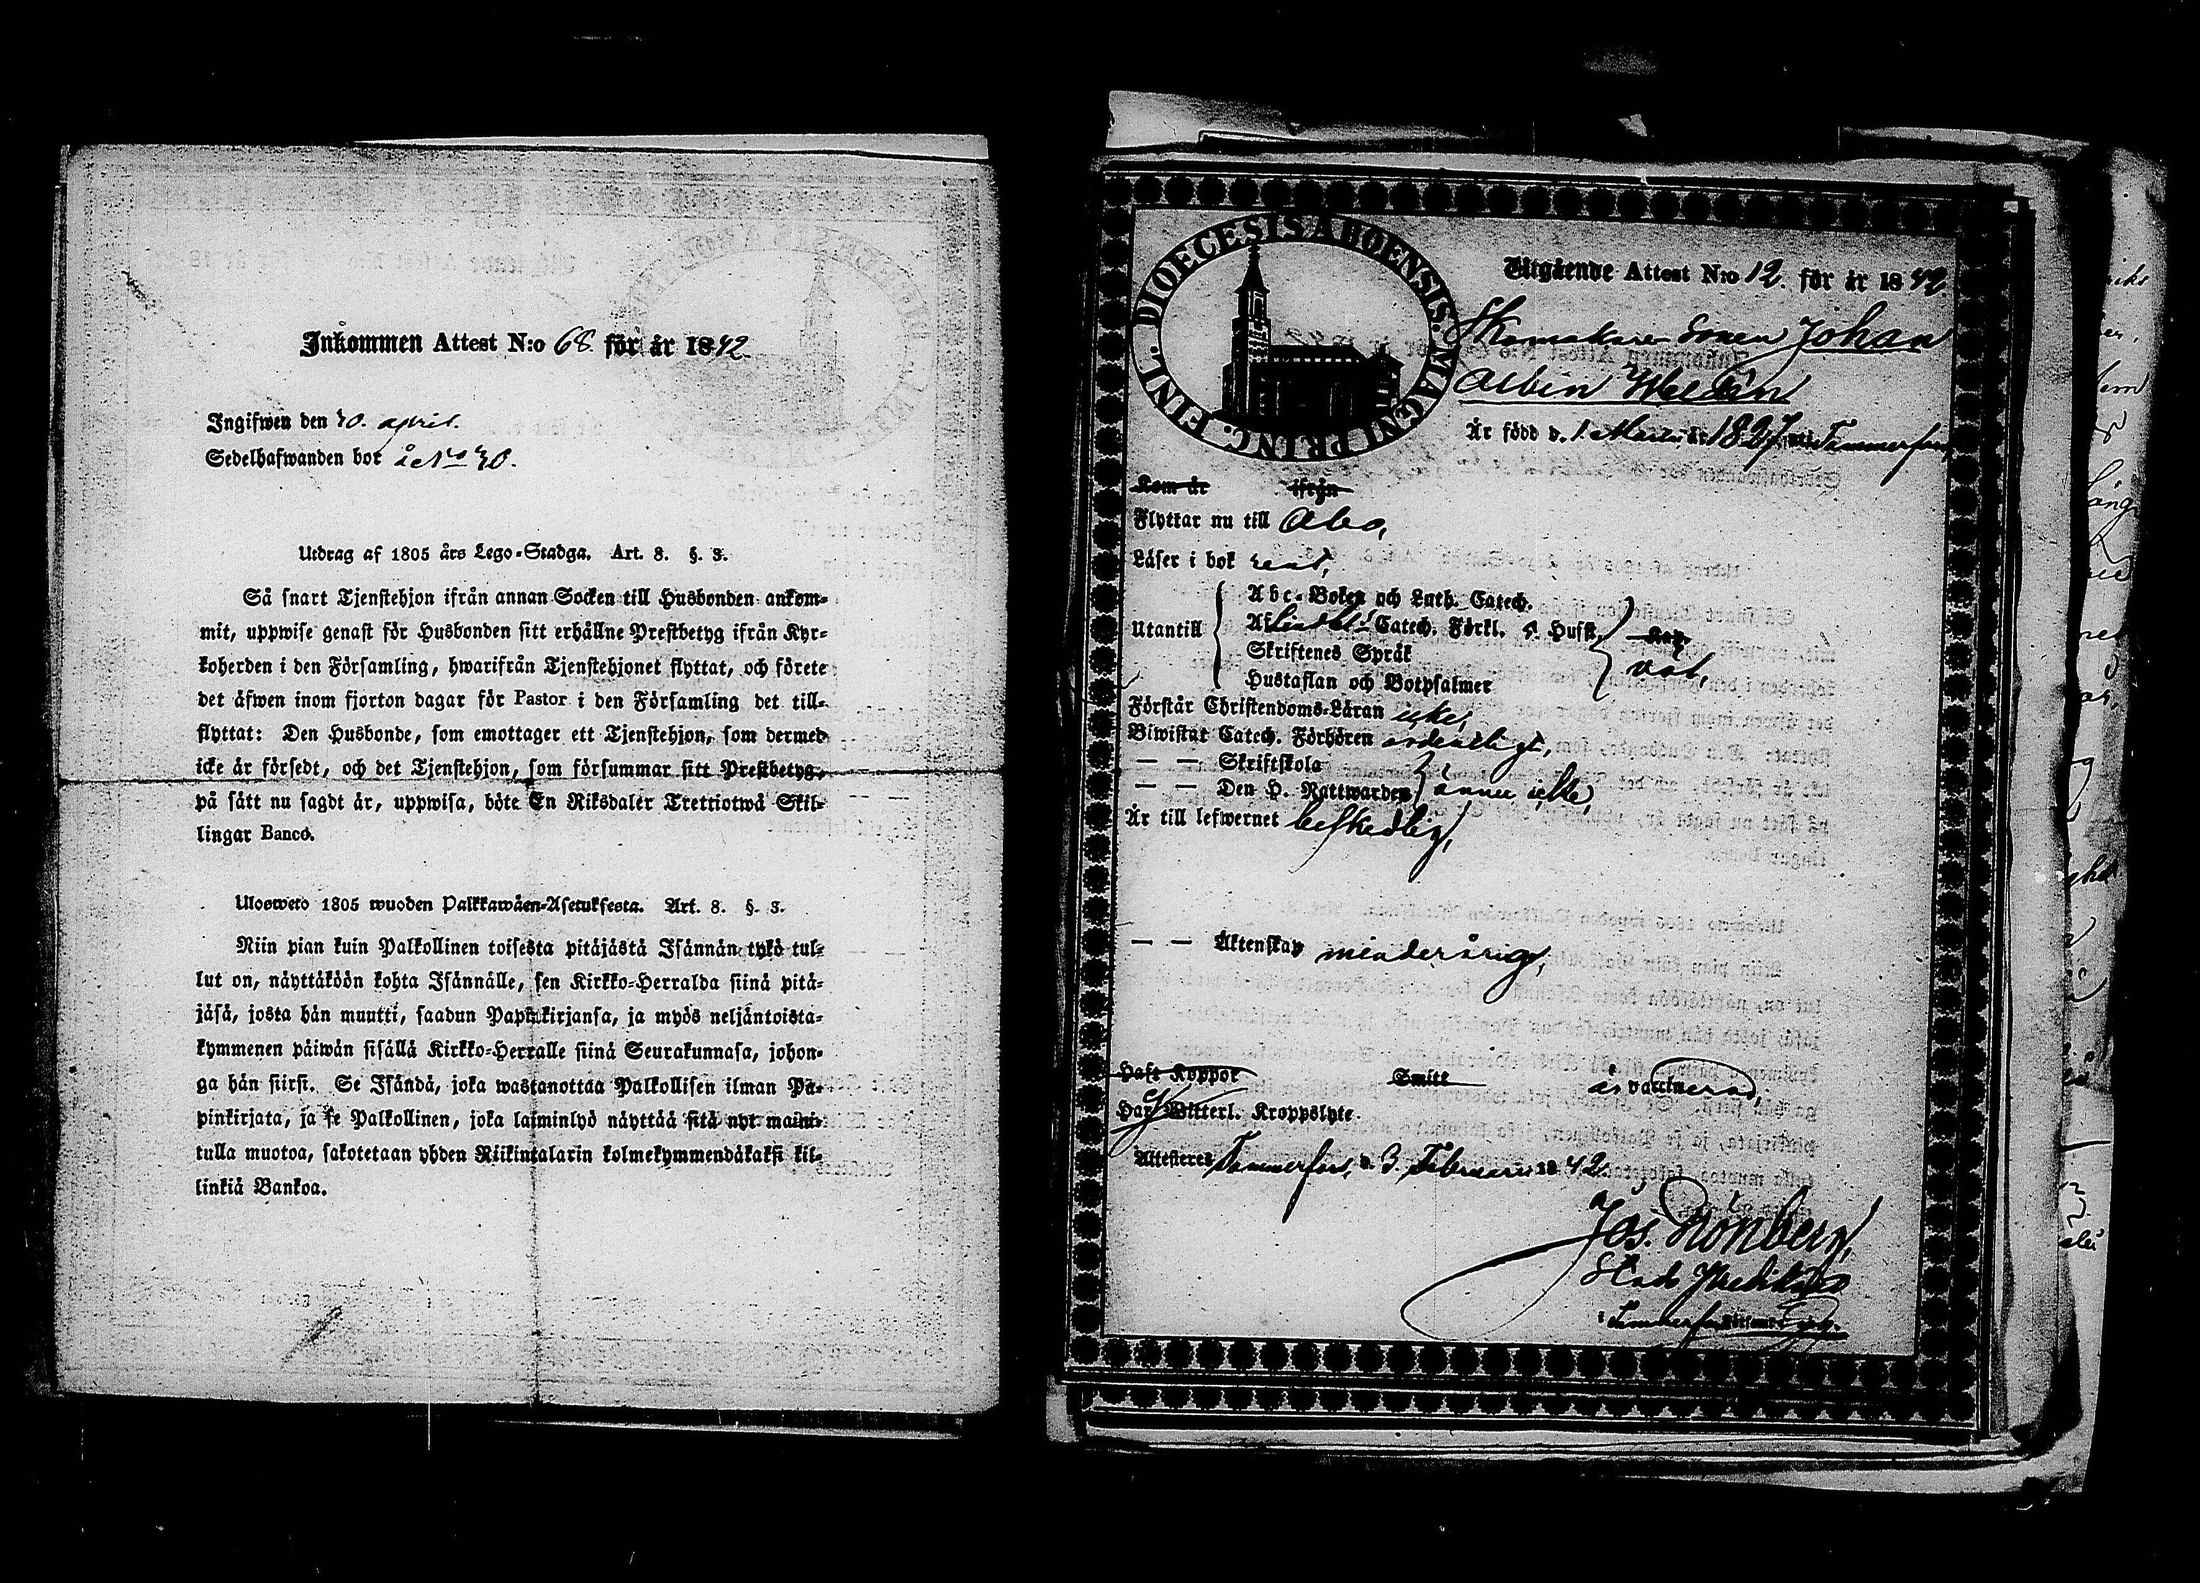 Inkommen Attest N:o 68. för år 1842.
Ingifwen den 20. april.
Sedelhafwanden bor å No 20.
Utdrag af 1805 års Lego-Stadga. Art. 8. §. 3.
Så snart Tjenstehjon ifrån annan Socken till Husbonden ankom-
mit, uppwise genast för Husbonden sitt erhållne Prestbetyg ifrån Kyr-
koherden i den Församling, hwarifrån Tjenstehjonet flyttat, och förete
det äfwen inom fjorton dagar för Pastor i den Församling det till-
flyttat: Den Husbonde, som emottager ett Tjenstehjon, som dermed
icke är försedt, och det Tjenstehjon, som försummar sitt Prestbetyg,
på sätt nu sagdt är, uppwisa, böte En Riksdaler Trettiotwå Skil-
lingar Banco.
Ulosweto 1805 wuoden Palkkawäen-Asetuksesta. Art. 8. §. 3.
Niin pian kuin Palkollinen toisesta pitäjästä Isännän tykö tul-
lut on, näyttäköön kohta Isännälle, sen Kirkko-Herralda siinä pitä-
jäsä, josta hän muutti, saadun Papinkirjansa, ja myös neljäntoista-
kymmenen päiwän sisällä Kirkko-Herralle siinä Seurakunnasa, johon-
ga hän siirsi. Se Isändä, joka wastanottaa Palkollisen ilman Pa-
pinkirjata, ja se Palkollinen, joka laiminlyö näyttää sitä nyt maini-
tulla muotoa, sakotetaan yhden Riikintalarin kolmekymmendäkaksi kil-
linkiä Bankoa.
FINL. DIOECESIS ABOENSIS. MAGNI PRINC.
Utgående Attest N:o 12. för år 1842.
Skomakare Sonen Johan
Albin Weldén
Är född d. 1. Martii år 1827, uti Tammerfors,
Kom år ifrån
Flyttar nu till Åbo,
Läser i bok rent,
Utantill
Abc-Boken och Luth. Catech.
Af Lindbl: Catech. Förkl. s. Husst.
Skriftenes Språk
Hustaflan och Botpsalmer
väl,
Förstår Christendoms-Läran icke,
Biwistat Catech. Förhören ordentligt,
— — Skriftskola
— — Den H. Nattwarden
ännu icke,
Är till lefwernet beskedlig,
— — Äktenskap minderårig,
Haft Koppor Smitt är vaccinerad,
Har Witterl. Kroppslyte.
Attesteres Tammerfors, d. 3. Februarii 1842.
Jos. Grönberg,
Stads Predikant
i Tammerfors Församl.